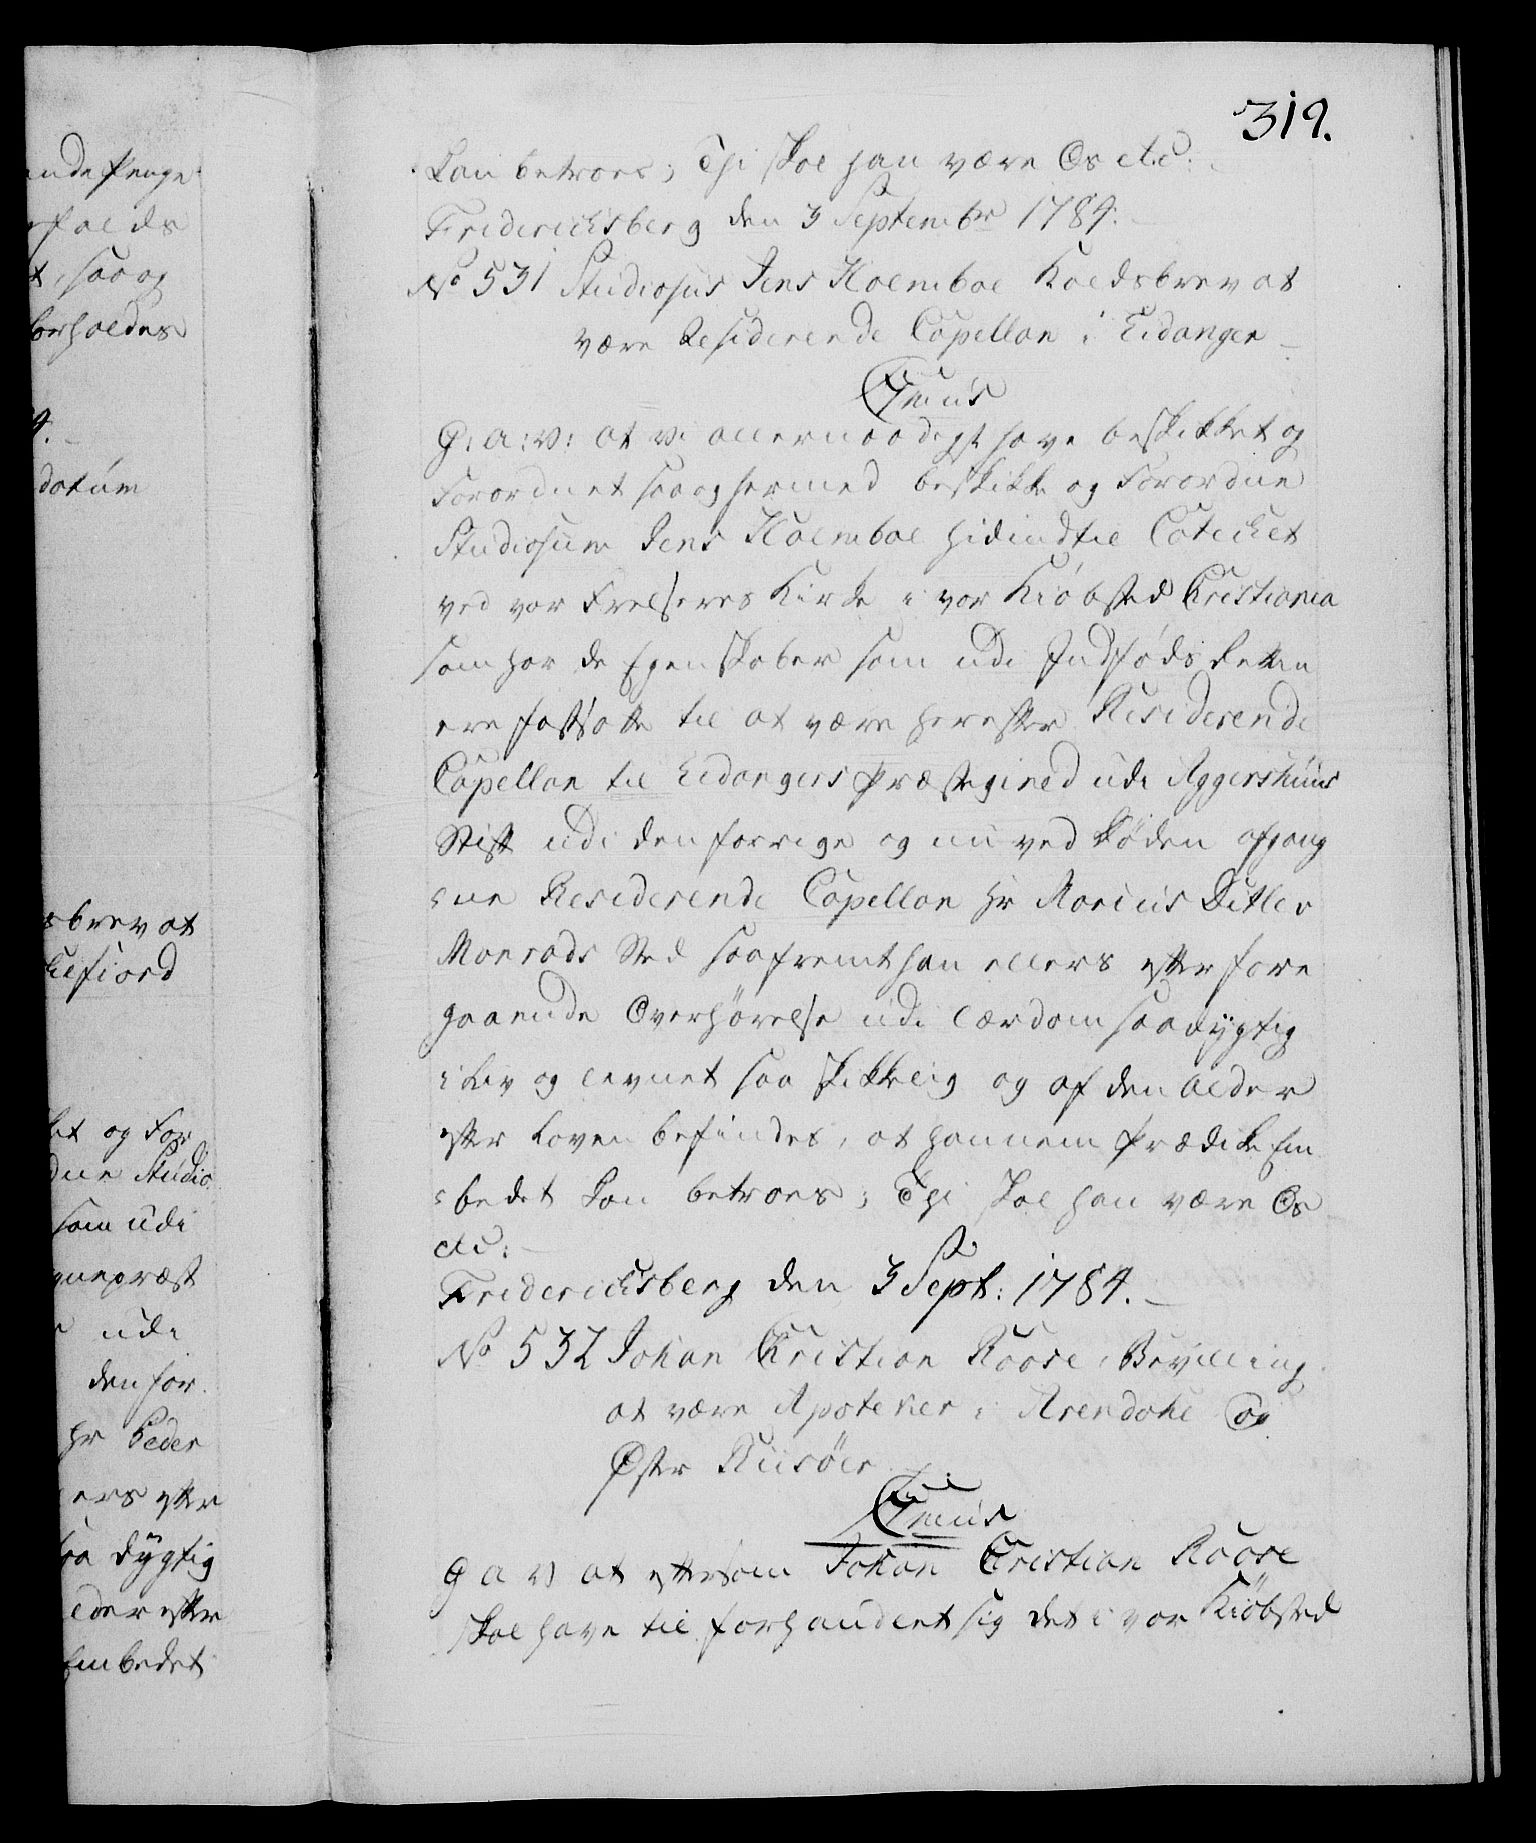 ende Penge
t, saa og
forholdes
4.
datum
sbrev at
kelfiord
ket og For
dne Studio
som udi
gnepræst
udi
den for
Hr Peder
ers efter
saa dygtig
lder efter
Embedet
319.
kan betroes; Thi skal han være Os etc:
Friderichsberg den 3 Septembr 1784.
No 531 Studiosus Jens Holmboe Kaldsbrev at
være Residerende Capellan i Eidanger
C7mus
G: a: v: at vi allernaadigst have beskikket og
Forordnet saa og hermed beskikke og Forordne
Studiosum Jens Holmboe hidindtil Catechet
ved vor Frelseres Kirke i vor Kiøbsted Christiania
som har de Egenskaber som udi Indføds Retten
ere fastsatte til at være herefter Residerende
Capellan til Eidangers Præstegield udi Aggershuus
Stift udi den forrige og nu ved Døden afgang
:ne Residerende Capellan Hr Marcus Ditlev
Monrads Sted saafremt han ellers efter fore
gaaende Overhørelse udi lærdom saa dygtig
i Liv og levnet saa skikkelig og af den alder
efter Loven befindes, at hannem Prædike Em
:bedet kan betroes; Thi skal han være Os
etc:
Friderichsberg den 3 Sept: 1784.
No 532 Johan Christian Roose, Bevilling
at være Apoteker i Arendahl og
Øster Riisøer
C7mus
G a v at eftersom Johan Christian Roose
skal have til forhandlet sig det i vor Kiøbsted